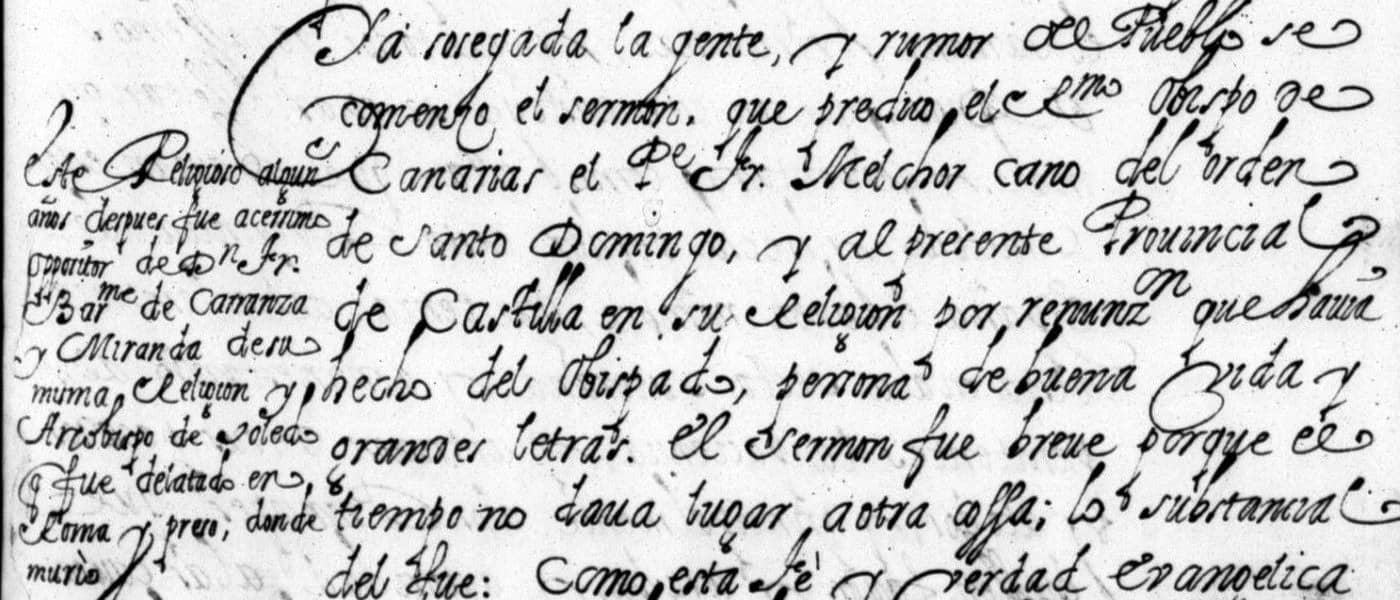 Ya sosegada la gente, y rumor del Pueblo se
comenzo el sermon. que predico el Exmo Obispo de
Canarias el Pe Fr. Melchor cano del orden
de Santo Domingo, y al presente Prouincial
de Castilla en su Religion por renunzon que hauia
hecho del Obispado, persona de buena vida y
grandes letras. El Sermon fue breue porque el
tiempo no daua lugar a otra cossa; lo substancial
del fue: Como esta Fe y verdad Evangelica
este Religioso algun
años despues fue acerrimo
oppositor de Dn Fr.
Barme de Carranza
y Miranda de su
misma Religion y
Arzobispo de Toledo
q fue delatado en
Roma y preso, donde
murio